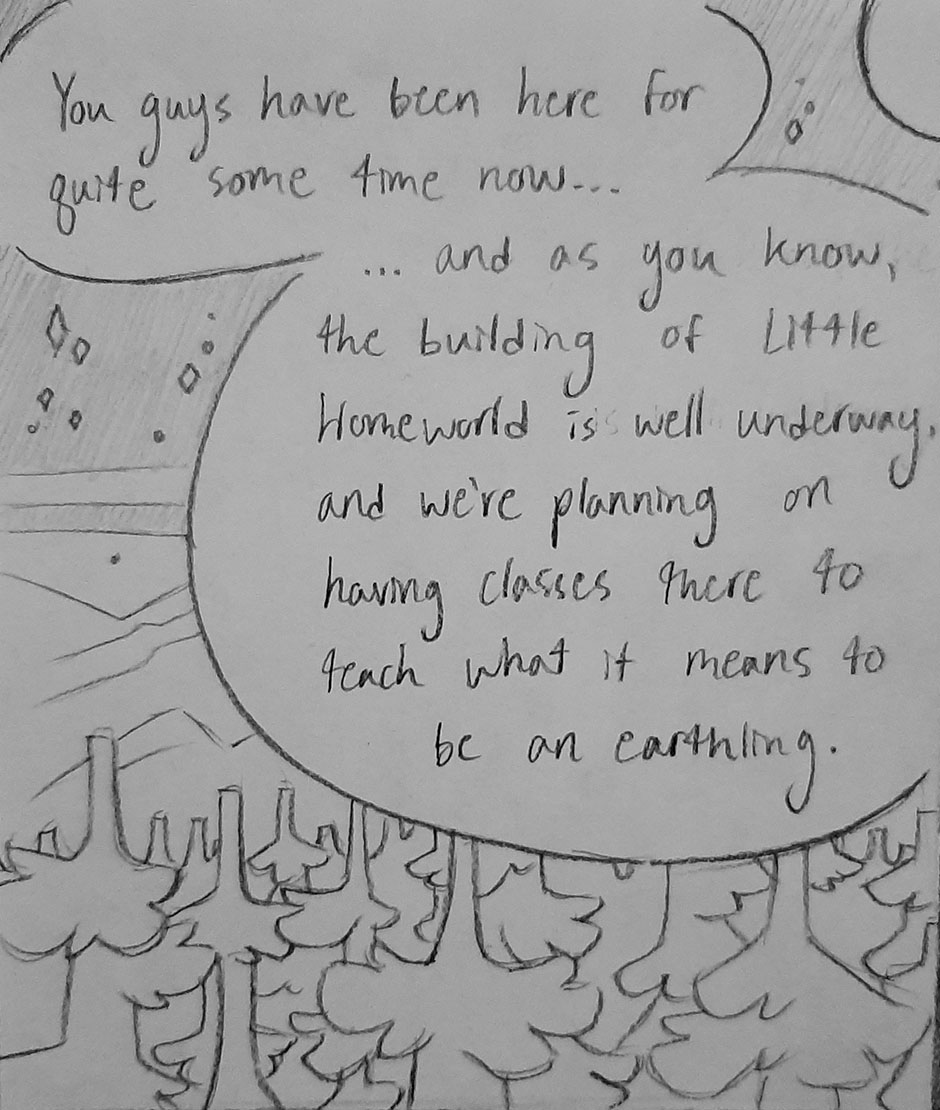 You guys have been here for
quite some time now...
... and as you know,
the building of Little
Homeworld is well underway,
and we're planning on
having classes there to
teach what it means to
be an earthling.